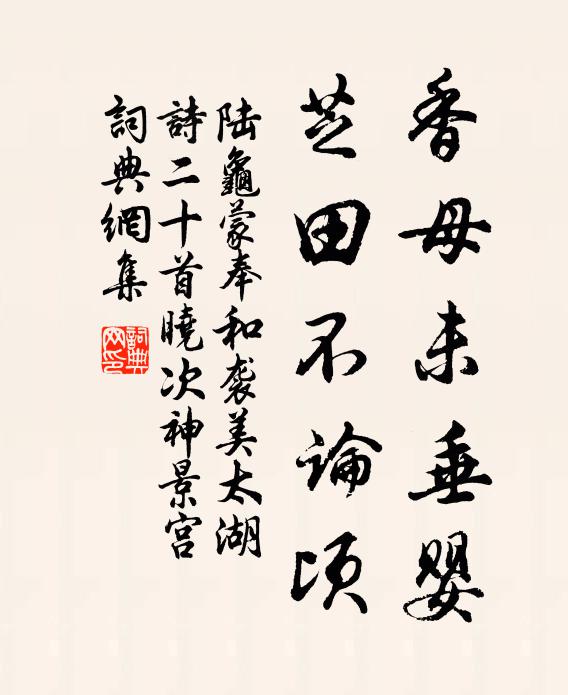 香母未垂嬰
芝田不論頃
陆龜蒙奉和袭美太湖
詩二十首曉次神景宫
詞典網集
詞典网印